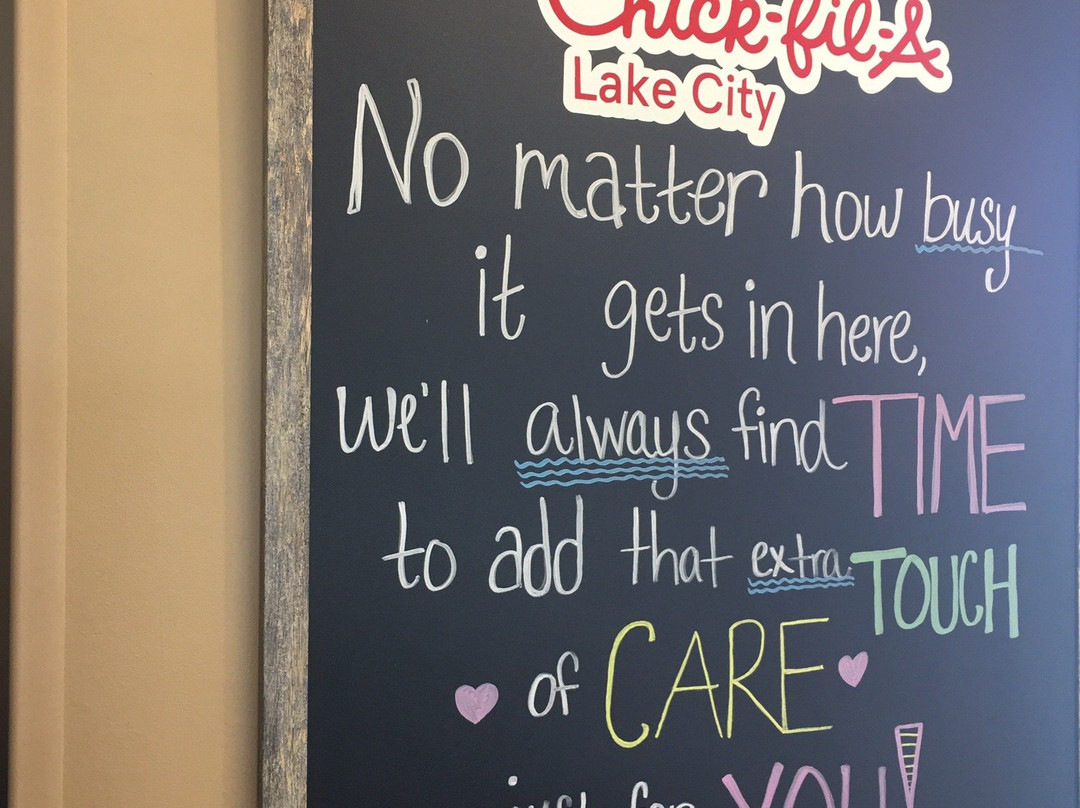 Chick-fil-A
Lake City
No matter how busy
it gets in here,
we'll always find TIME
to add that extra TOUCH
of CARE
just for YOU!